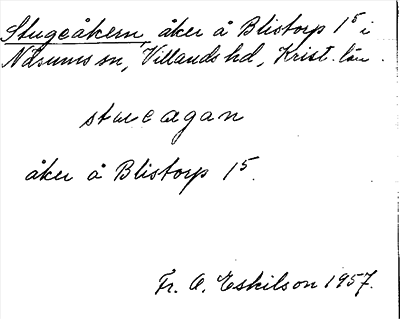 Stugeåkern, åker å Blistorp 1⁵ i
Näsums sn, Villands hd, Krist. län.
åker å Blistorp 1⁵.
Fr. A. Eskilson 1957.